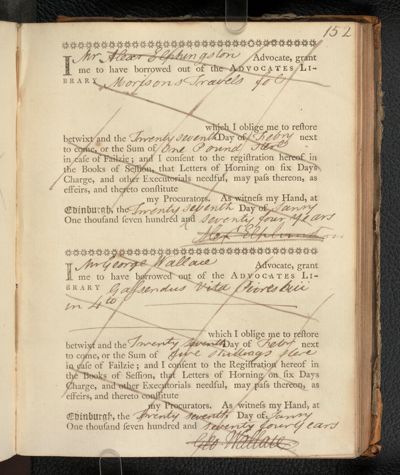 152
I Mr Alexr Elphingston Advocate, grant
me to have borrowed out of the ADVOCATES LI-
BRARY Morisons Travels fol
which I oblige me to reſtore
betwixt and the Twenty seventh Day of Febry next
to come, or the Sum of One Pound Sters
in caſe of Failzie; and I conſent to the regiſtration hereof in
the Books of Seſſion, that Letters of Horning on ſix Days
Charge, and other Executorials needful, may paſs thereon, as
effeirs, and thereto conſtitute
my Procurators. As witneſs my Hand, at
Edinburgh, the Twenty seventh Day of Janry
One thouſand ſeven hundred and seventy four years
Alexr Elphinston
I Mr George Wallace Advocate, grant
me to have borrowed out of the ADVOCATES LI-
BRARY Gassendus Vita Peireskii
in 4to
which I oblige me to reſtore
betwixt and the Twenty seventh Day of Febry next
to come, or the Sum of five Shillings Sters
in caſe of Failzie; and I conſent to the Regiſtration hereof in
the Books of Seſſion, that Letters of Horning on ſix Days
Charge, and other Executorials needful, may paſs thereon, as
effeirs, and thereto conſtitute
my Procurators. As witneſs my Hand, at
Edinburgh, the Twenty seventh Day of Janry
One thouſand ſeven hundred and seventy four years
Geo Wallace